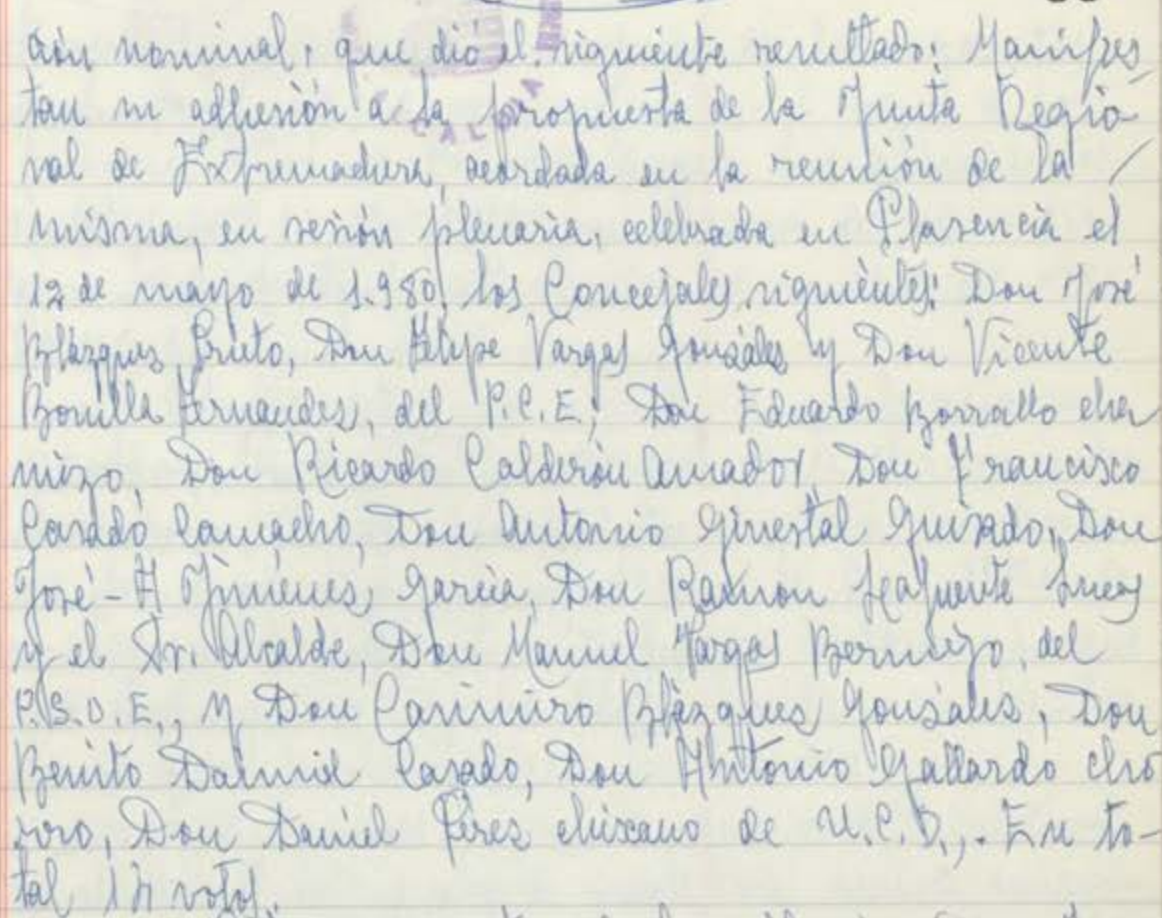 ción nominal, que dió el siguiente resultado: Manifies
tan su adhesión a la propuesta de la Junta Regio-
nal de Extremadura, acordada en la reunión de la
misma, en sesión plenaria, celebrada en Plasencia el
12 de mayo de 1.980, los Concejales siguientes: Don José
Blázquez Prieto, Don Felipe Vargas Gonzáles y Don Vicente
Bonilla Fernandes, del P.C.E; Don Eduardo Borrallo cha
mizo, Don Ricardo Calderón Amador, Don Francisco
Casado Camacho, Don Antonio Ginestal Guisado, Don
José-A Jiménes García, Don Ramon Lafuente Lucas
y el Sr. Alcalde, Don Manuel Vargas Bermejo, del
P.S.O.E., y Don Casimiro Blázques Gonsáles, Don
Benito Casado, Don Antonio Gallardo cho
rro, Don Daniel Péres chiscano de U.C.D,. En to-
tal votos.
ALCALDIA